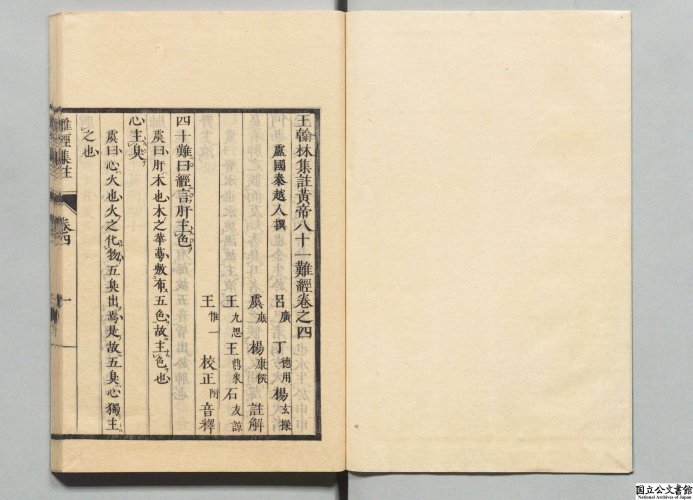 王翰林集註黃帝八十一難經卷之四
盧國秦越人撰
呂廣 丁德用 楊玄操
虞庶 楊康侯 註解
王九思 王鼎象 石友諒
王惟一 校正附音釋
四十難曰經言肝主色
虞曰肝木也木之華蘂敷布五色故主色也
心主臭
虞曰心火也火之化物五臭出焉是故五臭心獨主
之也
難經集註 卷四 一
国立公文書館
National Archives of Japan